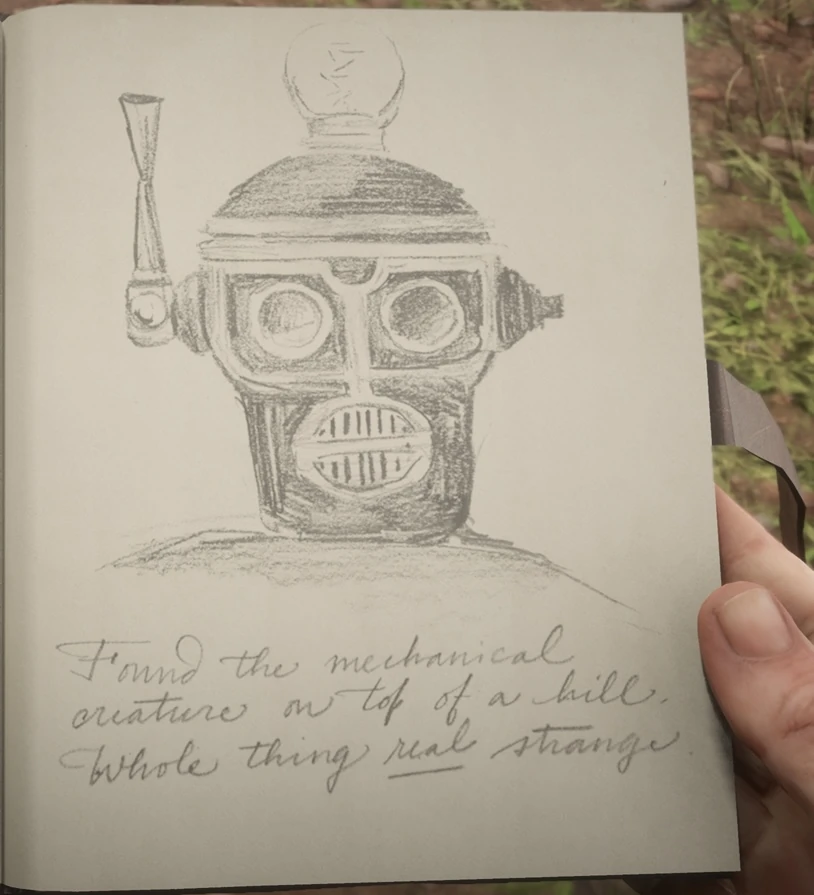 Found the mechanical
creature on top of a hill.
Whole thing real strange.